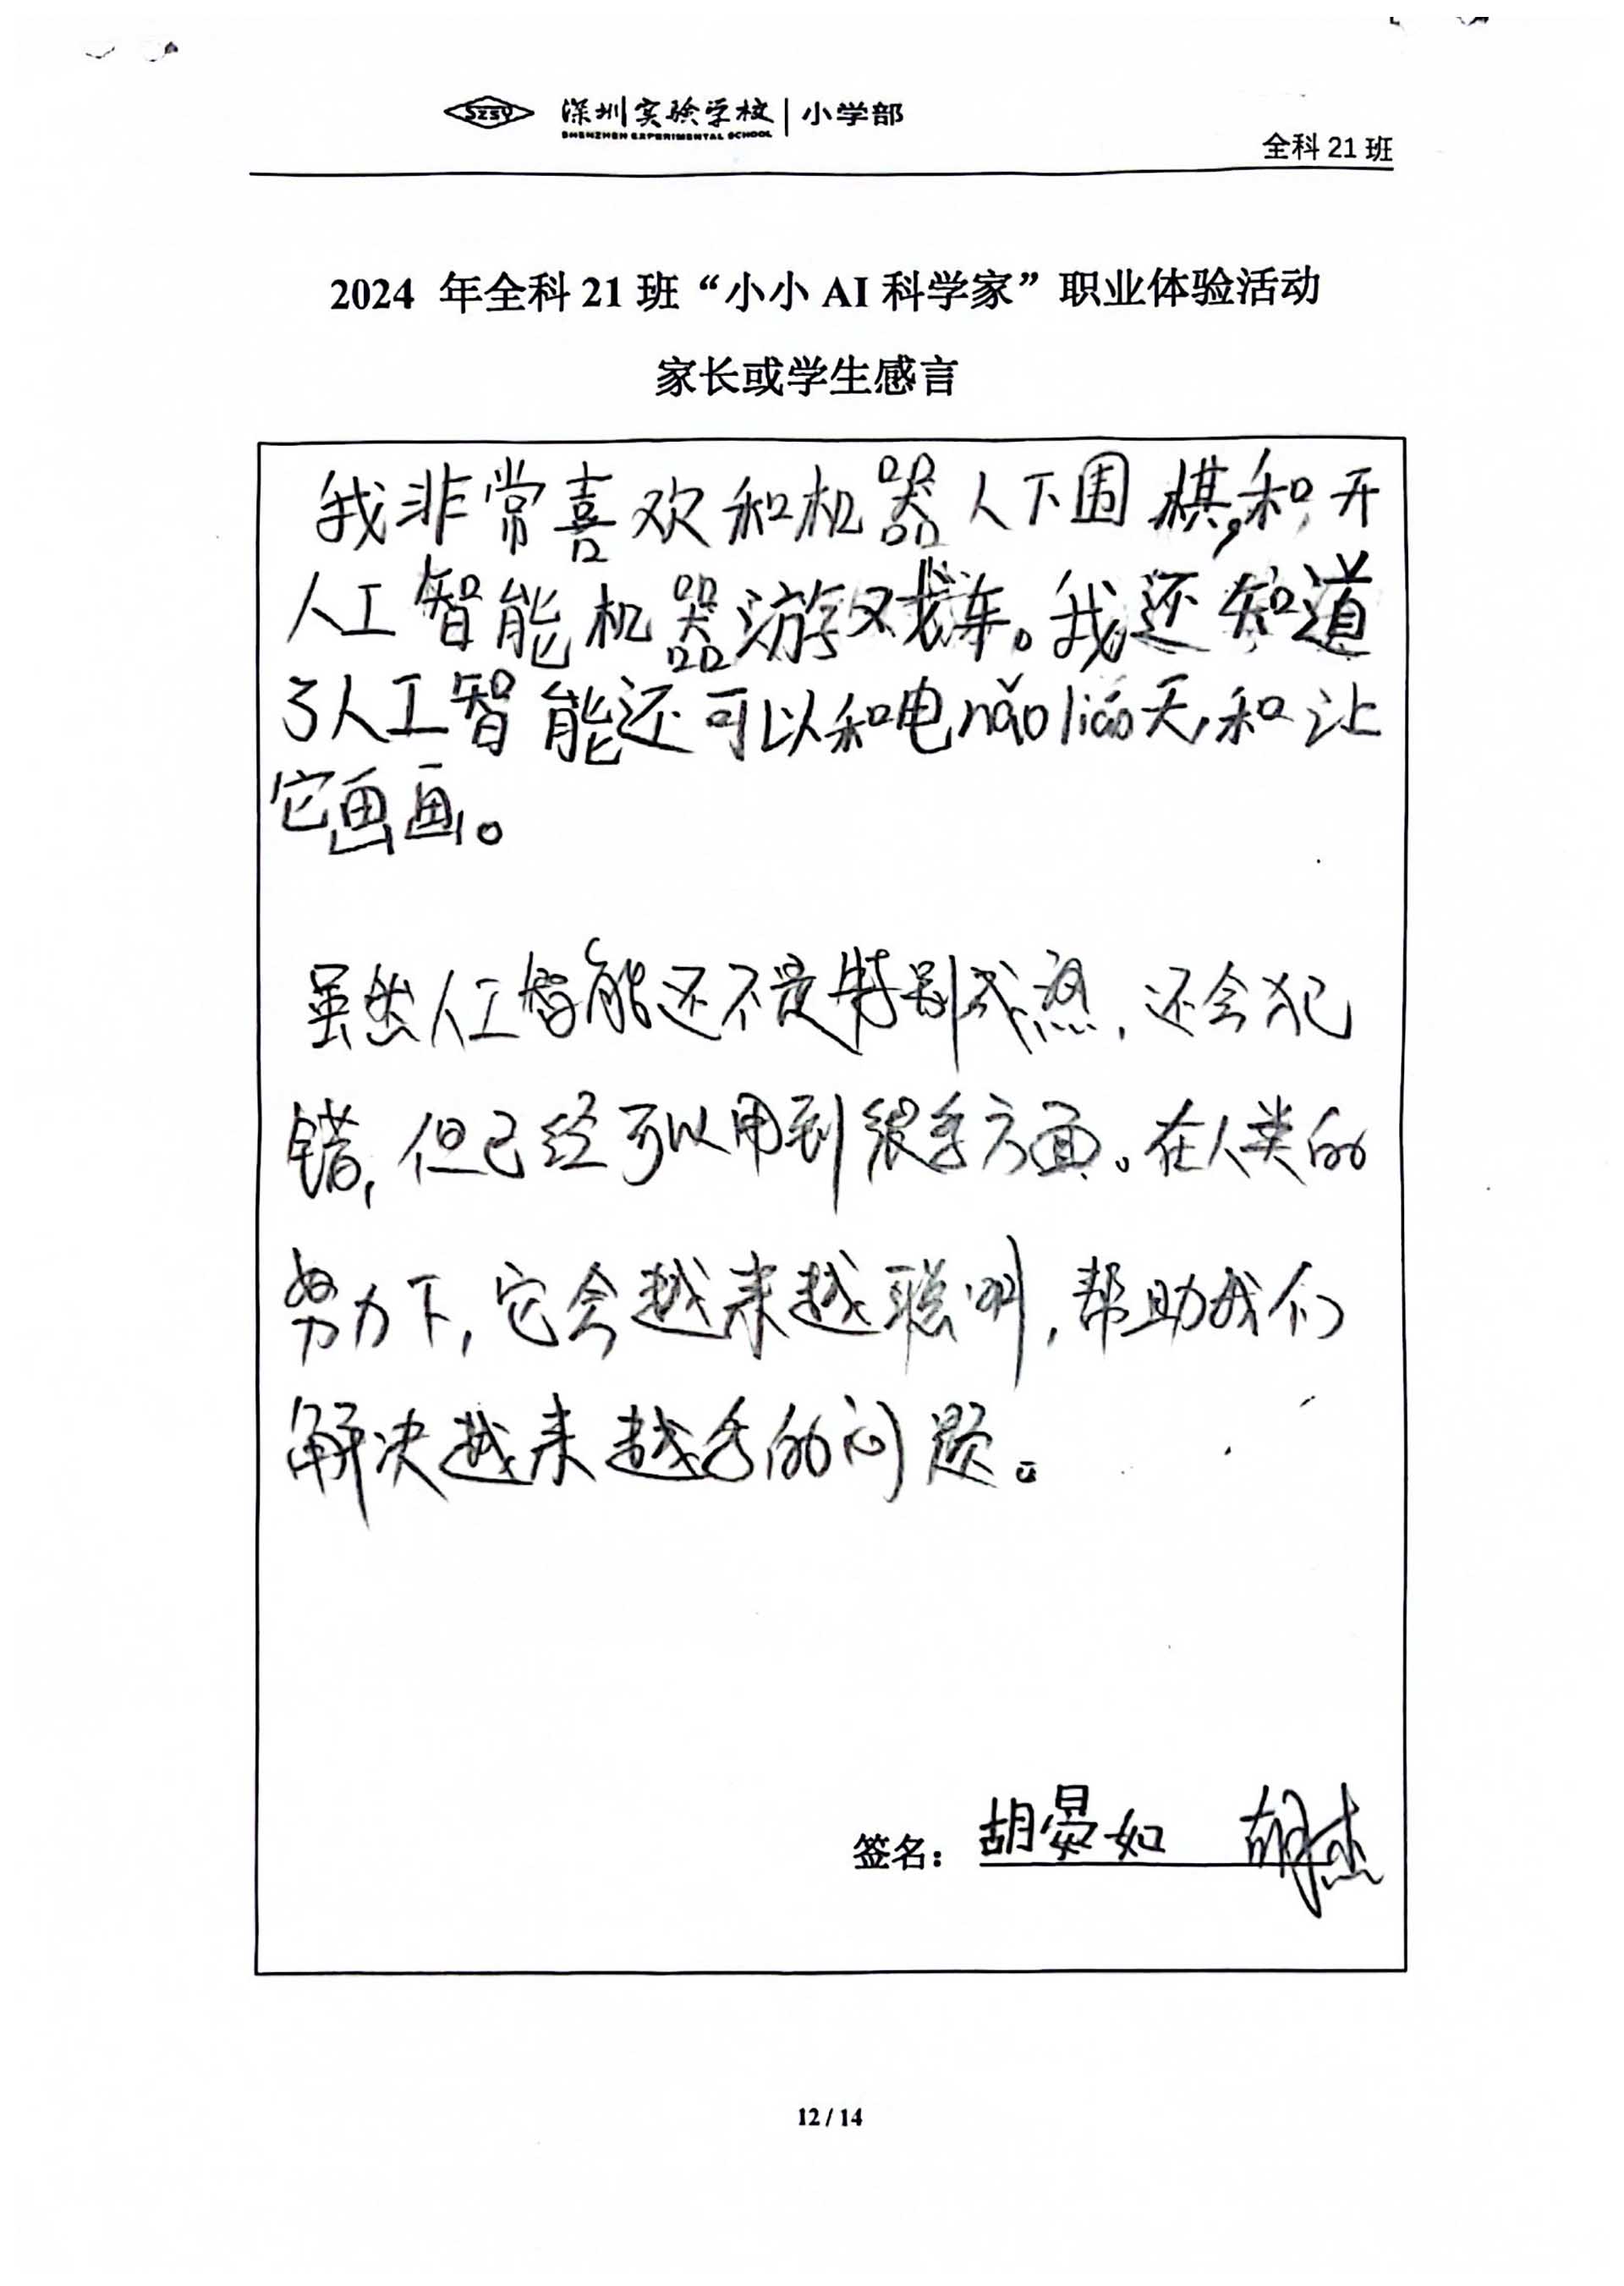 SZSY 深圳实验学校 | 小学部
SHENZHEN EXPERIMENTAL SCHOOL
全科 21 班
2024 年全科 21 班“小小 AI 科学家”职业体验活动
家长或学生感言
我非常喜欢和机器人下围棋,和开
人工智能机器游戏车。我还知道
了人工智能还可以和电nǎo liáo天,和让
它画画。
虽然人工智能还不是特别成熟,还会犯
错,但已经可以用到很多方面。在人类的
努力下,它会越来越聪明,帮助我们
解决越来越多的问题。
签名: 胡晏如 胡杰
12 / 14